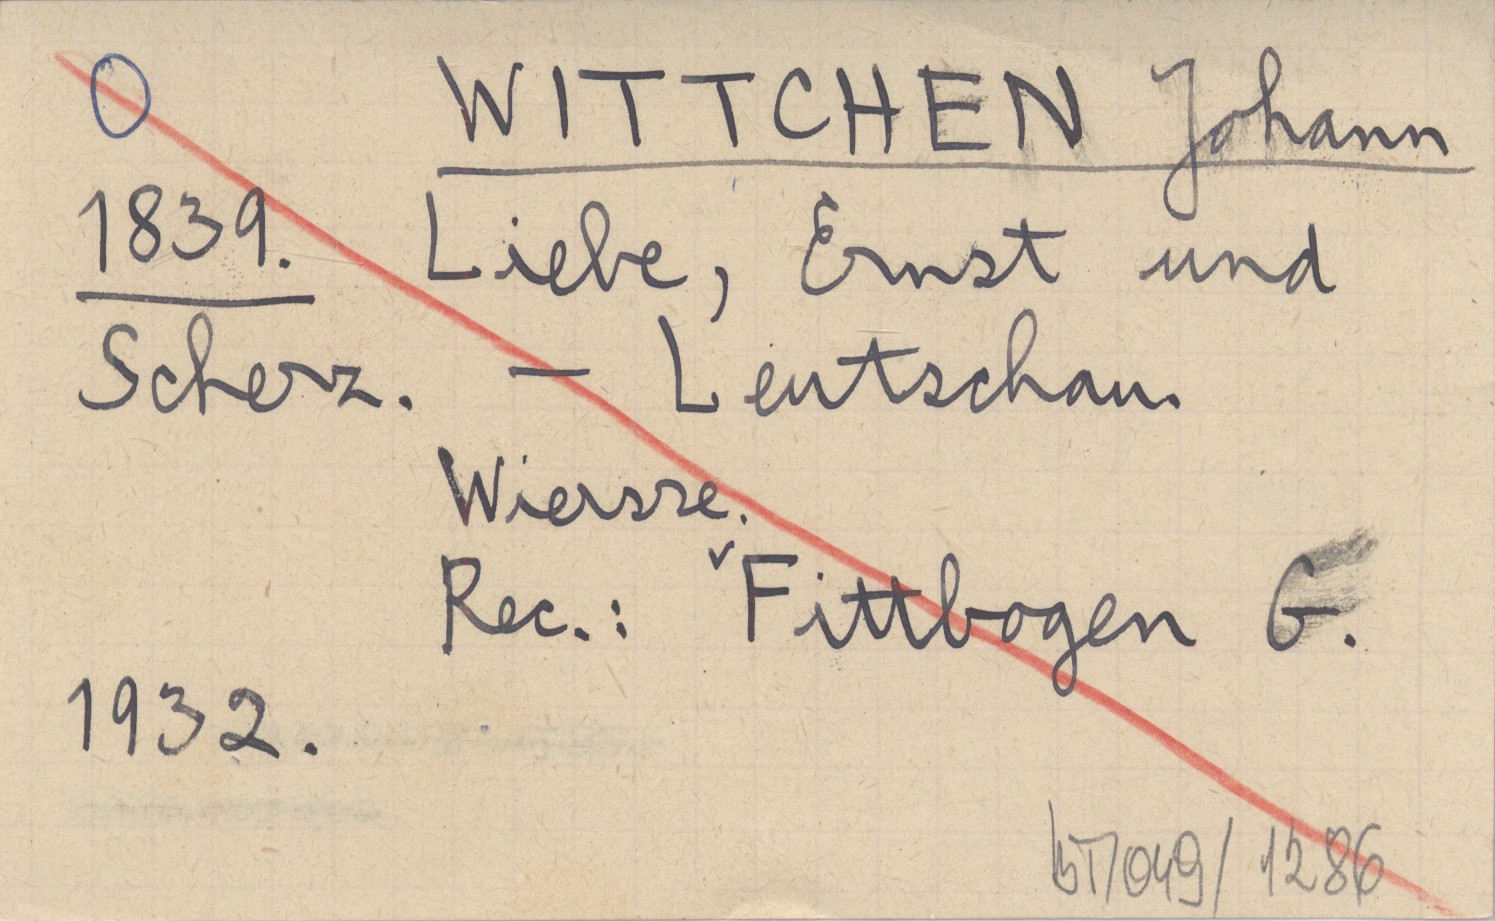 O WITTCHEN Johann
1839. Liebe, Ernst und
Scherz. — Leutschau.
Wiersse.
Rec.: ˇFittbogen G.
1932.
BT/049/1286